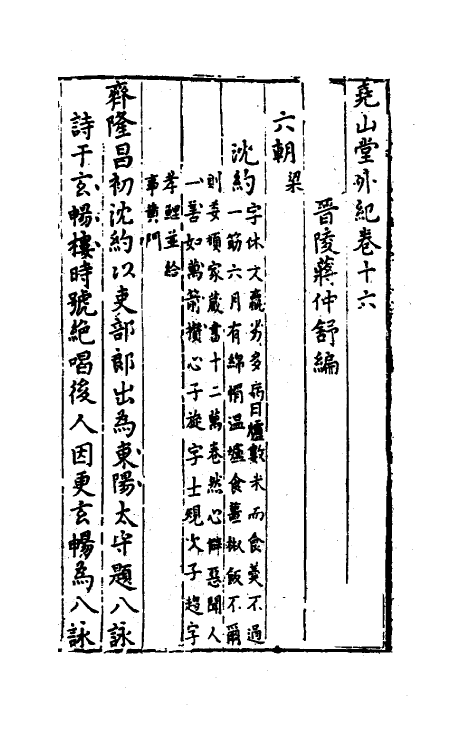 堯山堂外紀卷十六
晉陵蔣仲舒編
六朝 梁
沈約 字休文羸劣多病日數米而食羹不過
一筋六月有綿帽溫爐食薑椒飯不爾
則委頓家藏書十二萬卷然心僻惡聞人
一善如萬箭攢心子旋字士規次子趨字
孝鯉並給
事黃門
齊隆昌初沈約以吏部郎出為東陽太守題八詠
詩于玄暢樓時號絕唱後人因更玄暢為八詠